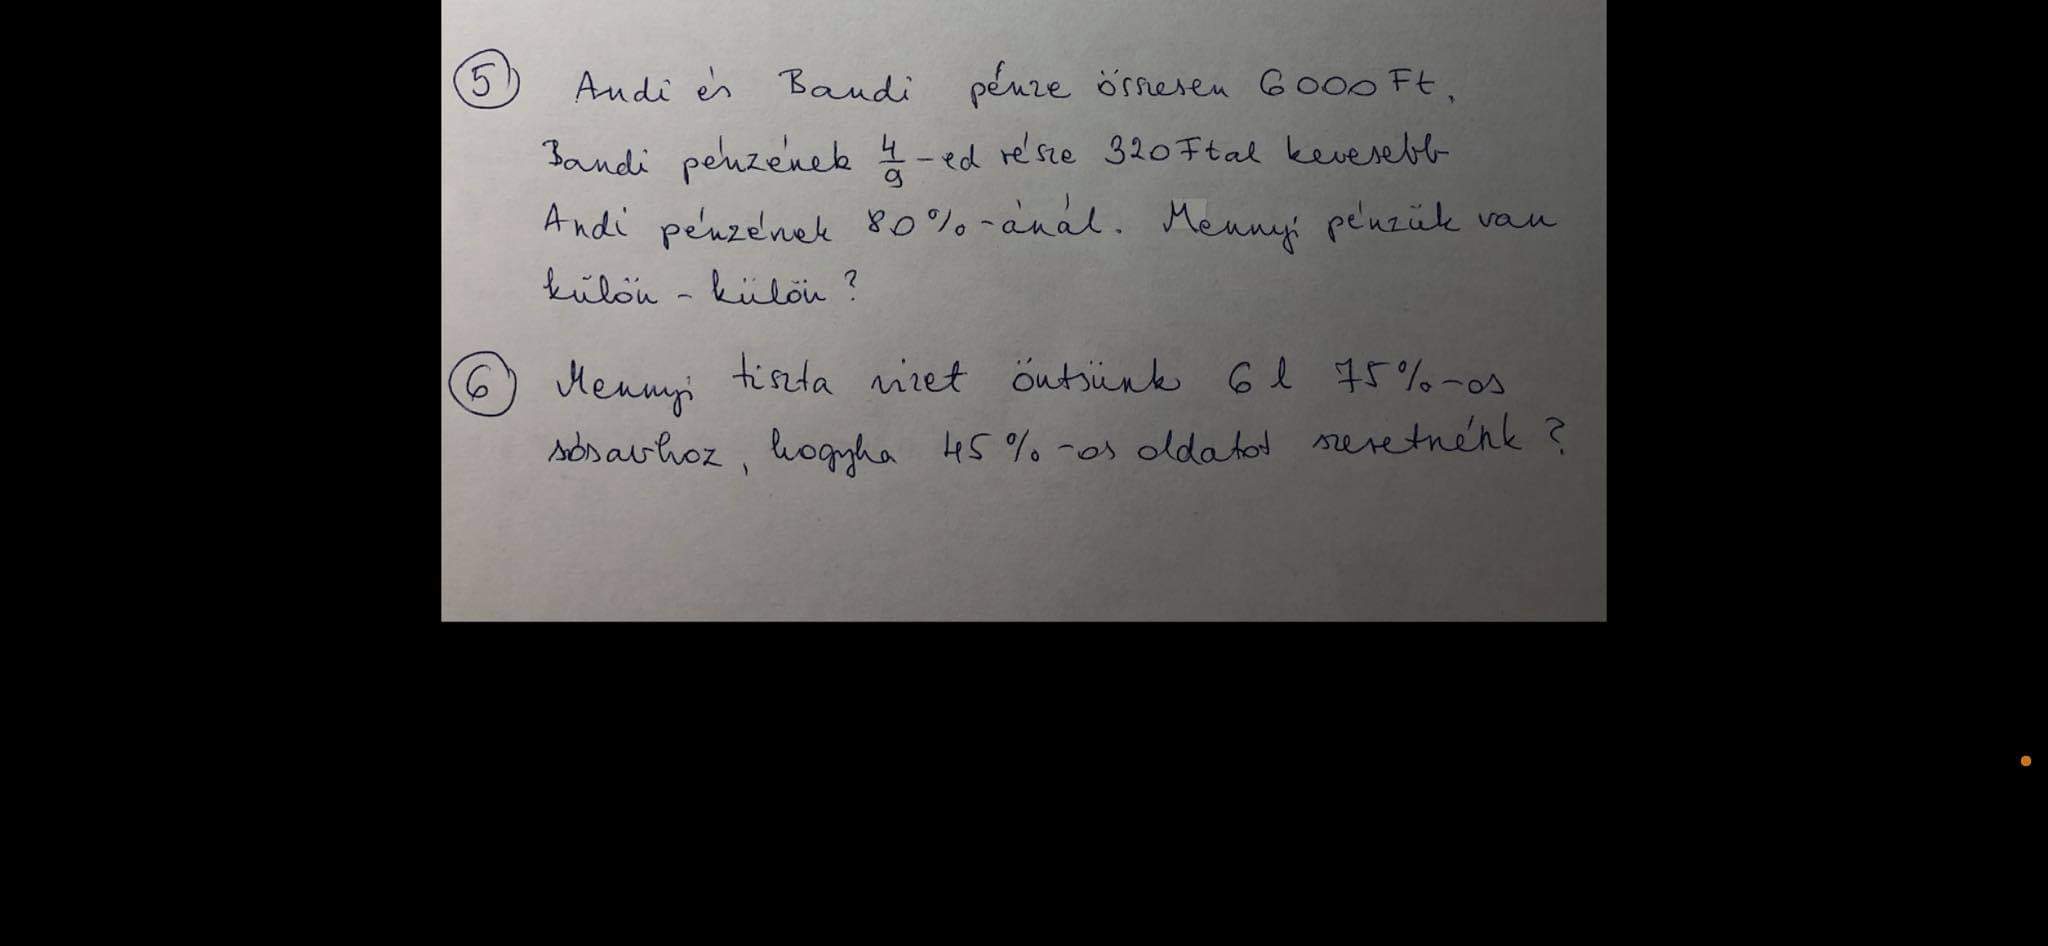 5 Andi és Bandi pénze összesen 6000 Ft.
Bandi pénzének 4/9-ed része 320 Ftal kevesebb
Andi pénzének 80%-ánál. Mennyi pénzük van
külön-külön?
6 Mennyi tiszta vizet öntsünk 6 l 75%-os
sósavhoz, hogyha 45%-os oldatot szeretnénk?